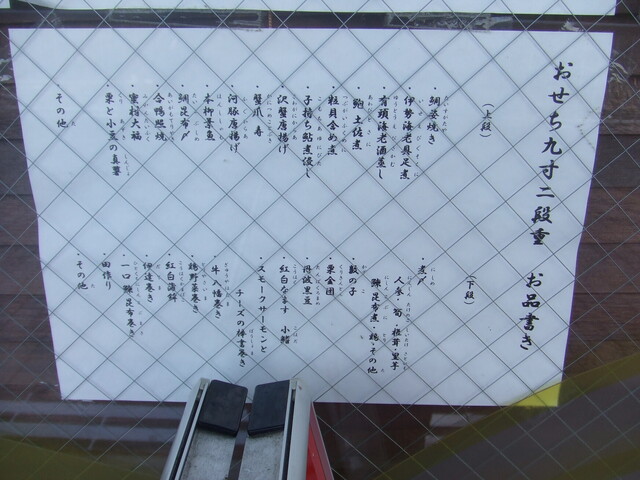 おせち九寸二段重　お品書き
（上段）
・鯛姿焼き
・伊勢海老具足煮
・有頭海老酒蒸し
・鮑土佐煮
・粒貝含め煮
・子持ち鮎煮浸し
・沢蟹唐揚げ
・蟹爪寿
・河豚唐揚げ
・本柳葉魚
・鯛昆布〆
・合鴨燻焼
・蜜柑大福
・栗と小豆の真薯
・その他
（下段）
・煮〆
人参・筍・椎茸・里芋
鰊昆布煮・鶏・その他
・数の子
・栗金団
・丹波黒豆
・紅白なます　小鰭
・スモークサーモンと
チーズの棒書巻き
・牛八幡巻き
・鶏野菜巻き
・紅白蒲鉾
・伊達巻き
・一口鰊昆布巻き
・田作り
・その他